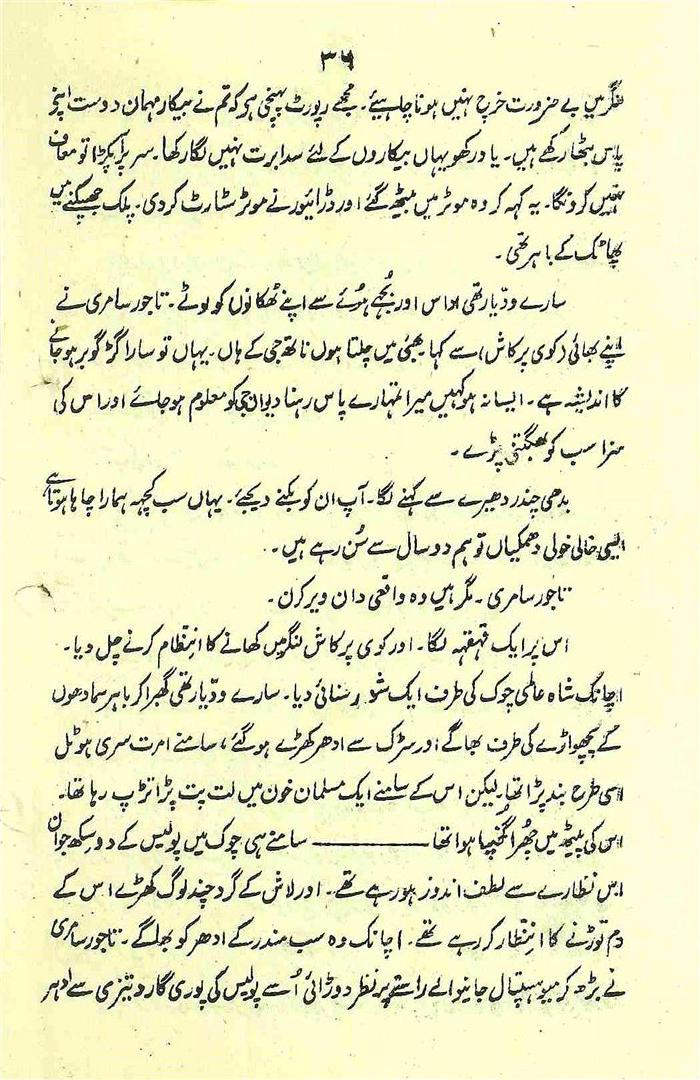 ۳۶
لنگر میں بے ضرورت خرچ نہیں ہونا چاہیئے۔ مجھے رپورٹ پہنچی ہر کہ تم نے بیکار مہمان دوست اپنے
پاس بٹھا رکھے ہیں۔ یاد رکھو یہاں بیکاروں کے لئے سدابرت نہیں لگا رکھا۔ سر پر آپڑا تو معاف
نہیں کرونگا۔ یہ کہہ کر وہ موٹر میں بیٹھ گئے اور ڈرائیور نے موٹر سٹارٹ کر دی۔ پلک جھپکنے میں
پھاٹک کے باہر تھی۔
سارے ودیارتھی اداس اور بُجھے ہوئے سے اپنے ٹھکانوں کو لوٹے۔ تاجور سامری نے
اپنے بھائی (کوی پرکاش) سے کہا بھئی میں چلتا ہوں ناتھ جی کے ہاں۔ یہاں تو سارا گڑ گوبر ہو جانے
کا اندیشہ ہے۔ ایسا نہ ہو کہیں میرا تمہارے پاس رہنا دیوان جی کو معلوم ہو جائے اور اس کی
سزا سب کو بھگتنی پڑے۔
بدھی چندر دھیرے سے کہنے لگا۔ آپ ان کو بکنے دیجئے۔ یہاں سب کچھ ہمارا چاہا ہوتا ہے
ایسی خالی خولی دھمکیاں تو ہم دو سال سے سُن رہے ہیں۔
تاجور سامری۔ مگر ہیں وہ واقعی دان ویر کرن۔
اس پر ایک قہقہہ لگا۔ اور کوی پرکاش لنگر میں کھانے کا انتظام کرنے چل دیا۔
اچانک شاہ عالمی چوک کی طرف ایک شور سنائی دیا۔ سارے ودیارتھی گھبرا کر باہر سمادھوں
کے پچھواڑے کی طرف بھاگے اور سڑک سے ادھر کھڑے ہو گئے، سامنے امرت سری ہوٹل
اسی طرح بند پڑا تھا لیکن اس کے سامنے ایک مسلمان خون میں لت پت پڑا تڑپ رہا تھا۔
اس کی پیٹھ میں چھُرا کھُبھا ہوا تھا ——— سامنے ہی چوک میں پولیس کے دو سکھ جوان
اس نظارے سے لطف اندوز ہو رہے تھے۔ اور لاش کے گرد چند لوگ کھڑے اس کے
دم توڑنے کا انتظار کر رہے تھے۔ اچانک وہ سب مندر کے ادھر کو بھاگے۔ تاجور سامری
نے بڑھ کر میو ہسپتال جانیوالے راستے پر نظر دوڑائی اُسے پولیس کی پوری گارد تیزی سے ادھر